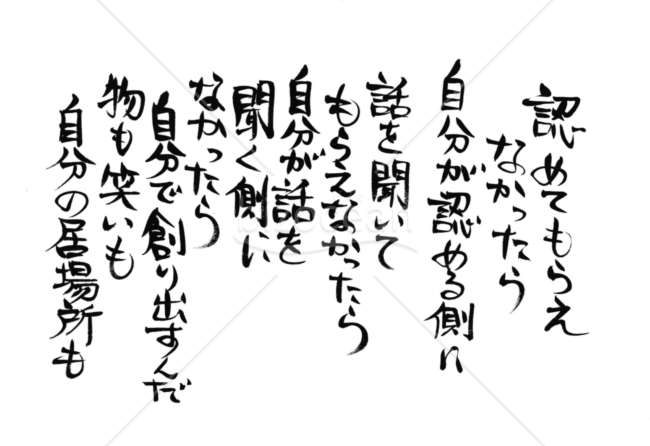 認めてもらえ
なかったら
自分が認める側に
話を聞いて
もらえなかったら
自分が話を
聞く側に
なかったら
自分で創り出すんだ
物も笑いも
自分の居場所も